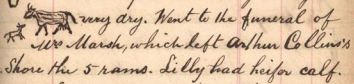 very dry. Went to the funeral of
Mr Marsh, which left Arthur Collins's
Shore the 5 rams. Lilly had heifer calf.